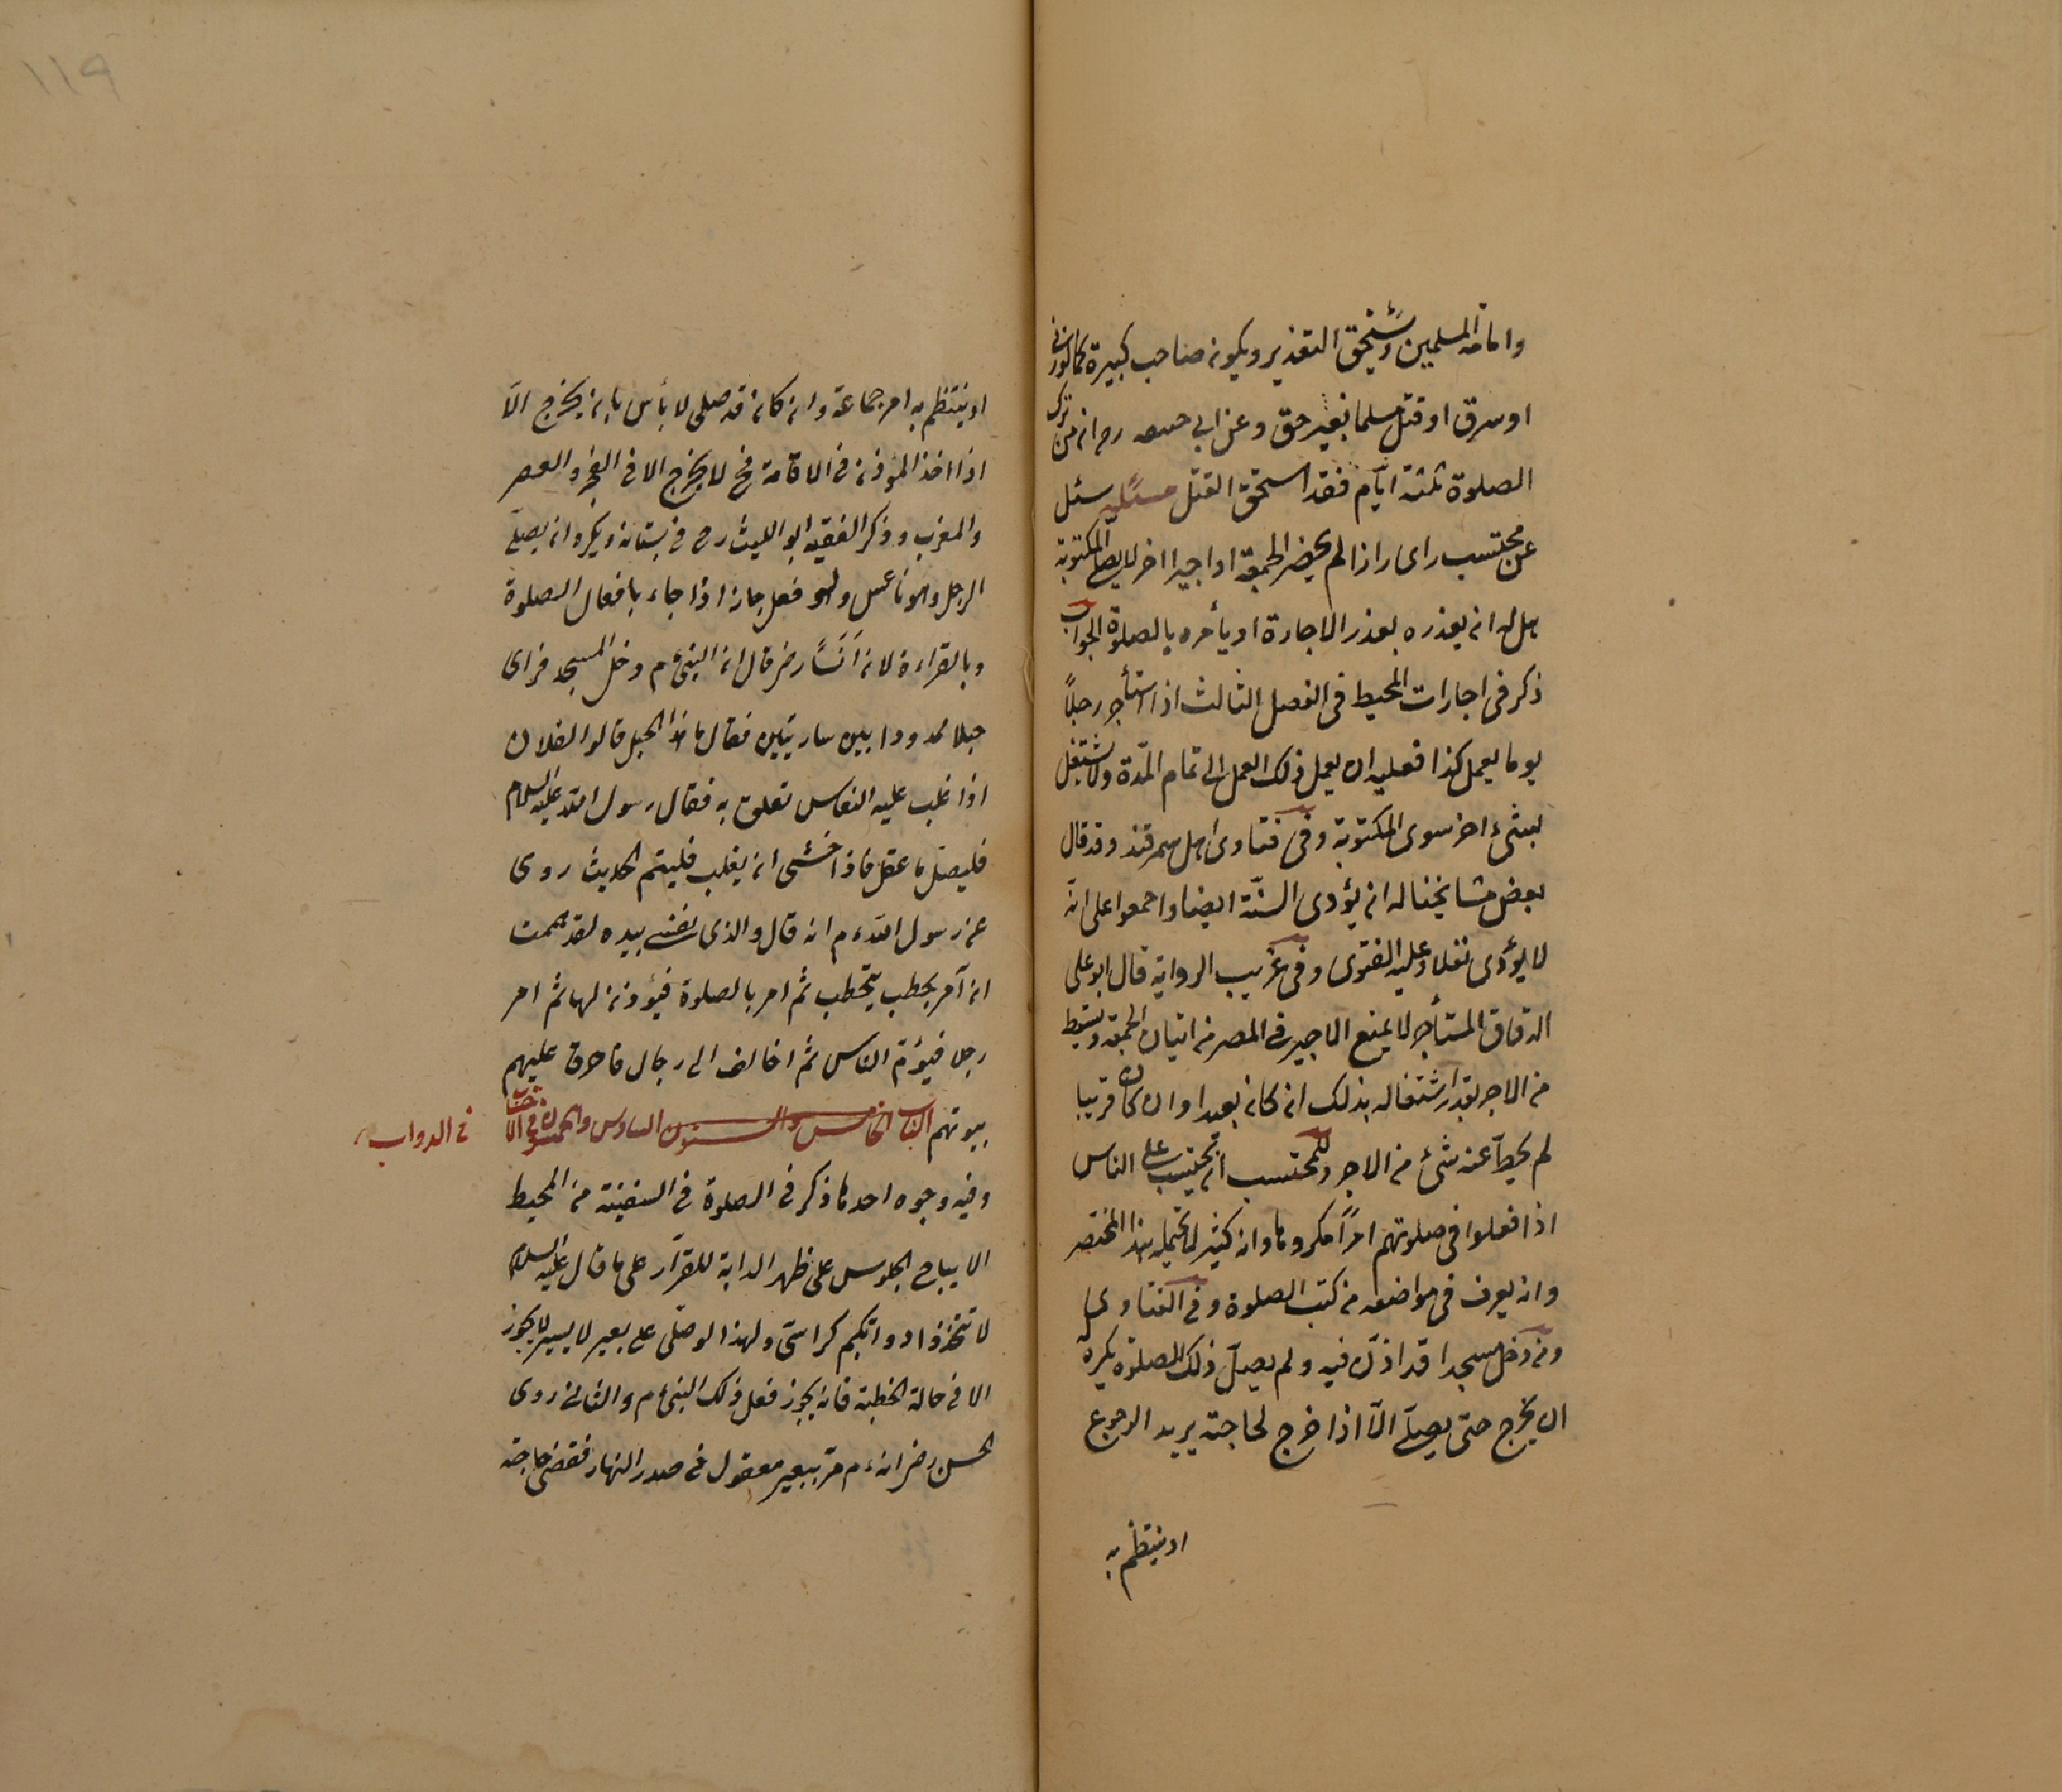 وامامة المسلمين ويستحق التعذير ويكون صاحب كبيرة كما لو زنى
او سرق او قتل مسلما بغير حق وعن ابي حنيفه رح ان من ترك
الصلوة ثلثة ايّام فقد استحق القتل مسئلة سئل
عن محتسب راى رازا لم يحضر الجمعة او اجيرا اخر لا يصلي المكتوبة
هل له ان يعذره بعذر الاجارة او يأمره بالصلوة الجواب
ذكر فى اجارات المحيط فى الفصل الثالث اذا استأجر رجلاً
يوما يعمل كذا فعليه ان يعمل ذلك العمل الى تمام المدة ولا يشتغل
بشئ اخر سوى المكتوبة وفى فتاوى اهل سمرقند وقد قال
بعض مشايخنا له ان يؤدى السنّة ايضا واجمعوا على انّه
لا يؤدى نفلا وعليه الفتوى وفى غريب الرواية قال ابو على
الدقاق المستأجر لا يمنع الاجير فى المصر من اتيان الجمعة ويسقط
من الاجر بقدر اشتغاله بذلك ان كان بعيدا وان كان قريبا
لم يحطّ عنه شئ من الاجر وللمحتسب ان يحتسب على الناس
اذا فعلوا فى صلوتهم امراً مكروها وانه كثير لا يحتمله هذا المختصر
وانه يعرف فى مواضعه من كتب الصلوة وفى الفتاوى
ومن دخل مسجدا قد اذّن فيه ولم يصلّ ذلك الصلوة يكره
ان يخرج حتى يصلّى الاّ اذا خرج لحاجته يريد الرجوع
او ينتظم به
١١٩
او ينتظم به امر جماعة وان كان قد صلى لا بأس بان يخرج الاّ
اذا اخذ المؤذن فى الاقامة فح لا يخرج الا فى الفجر والعصر
والمغرب وذكر الفقيه ابو الليث رح فى بستانه ويكره ان يصلّى
الرجل وهو ناعس ولو فعل جاز اذا جاء بافعال الصلوة
وبالقراءة لان اَنَساً رضر قال ان النبى ءم دخل المسجد فراى
حبلا ممدودا بين ساريتين فقال ما هذا الحبل قالوا لفلان
اذا غلب عليه النعاس تعلق به فقال رسول الله عليه السلام
فليصل ما عقل فاذا خشى ان يغلب فلينم الحديث روى
عن رسول الله ءم انه قال والذى نفسى بيده لقد هممت
ان آمر بحطب يتحطب ثم امر بالصلوة فيؤذن لها ثم امر
رجلا فيؤم الناس ثم اخالف الى رجال فاحرق عليهم
بيوتهم الباب الخامس والستون السادس والخمسون فى الاحتساب فى الدواب
وفيه وجوه احدها ذكر فى الصلوة فى السفينة من المحيط
الا يباح الجلوس على ظهر الدابة للقرار على ما قال عليه السلام
لا تتخذوا دوابكم كراسىّ ولهذا لو صلّى على بعير لا يسير لا يجوز
الا فى حالة الخطبة فانه يجوز فعل ذلك النبى ءم والثانى روى
الحسن رضر انه ءم مرّ ببعير معقول فى صدر النهار فقضى حاجته